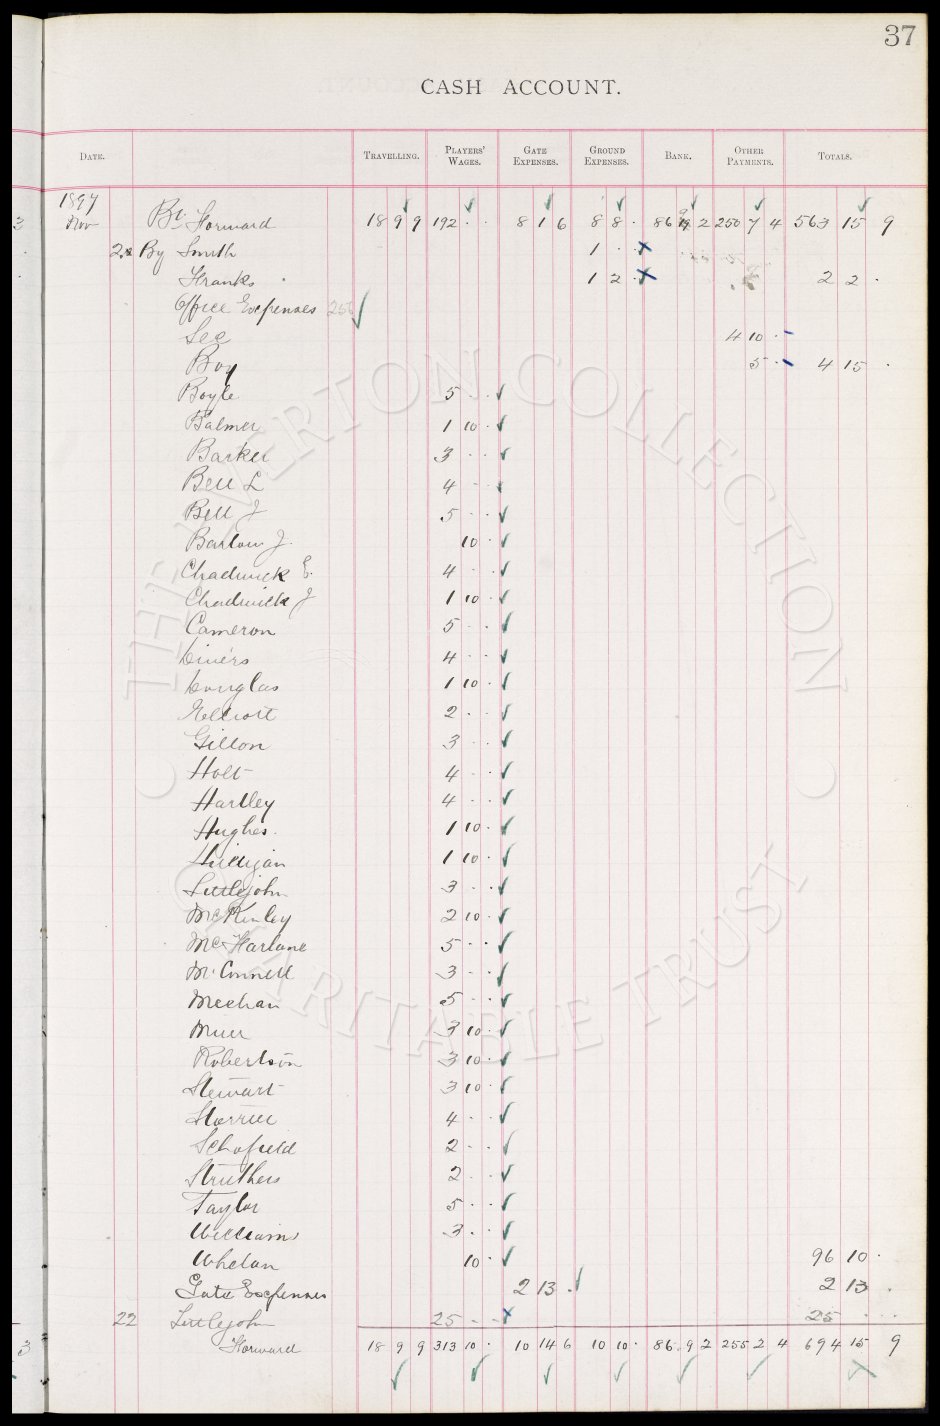 37
CASH ACCOUNT.
DATE. TRAVELLING. PLAYERS' WAGES. GATE EXPENSES. GROUND EXPENSES. BANK. OTHER PAYMENTS. TOTALS.
1897
Nov Bt Forward 18 9 9 192 . . 8 1 6 8 8 . 86 9 2 250 7 4 563 15 9
By Smith 1 . .
Franks 1 2 . 2 2 .
Office Expenses
Sec 4 10 .
Boy 5 . 4 15 .
Boyle 5 . .
Balmer 1 10 .
Barker 3 . .
Bell L 4 . .
Bell J 5 . .
Barlow J. 10 .
Chadwick E. 4 . .
Chadwick J 1 10 .
Cameron 5 . .
Divers 4 . .
Douglas 1 10 .
2 . .
Gillon 3 . .
Holt 4 . .
Hartley 4 . .
Hughes. 1 10 .
Hulligan 1 10 .
Littlejohn 3 . .
McKinley 2 10 .
McFarlane 5 . .
McConnell 3 . .
Meehan 5 . .
Muir 3 10 .
Robertson 3 10 .
Stewart 3 10 .
Storrier 4 . .
Schofield 2 . .
Struthers 2 . .
Taylor 5 . .
Williams 3 . .
Whelan 10 . 96 10 .
Gate Expenses 2 13 . 2 13 .
22 Littlejohn 25 . . 25 . .
Forward 18 9 9 313 10 . 10 14 6 10 10 . 86 9 2 255 2 4 694 15 9
THE EVERTON COLLECTION
CHARITABLE TRUST